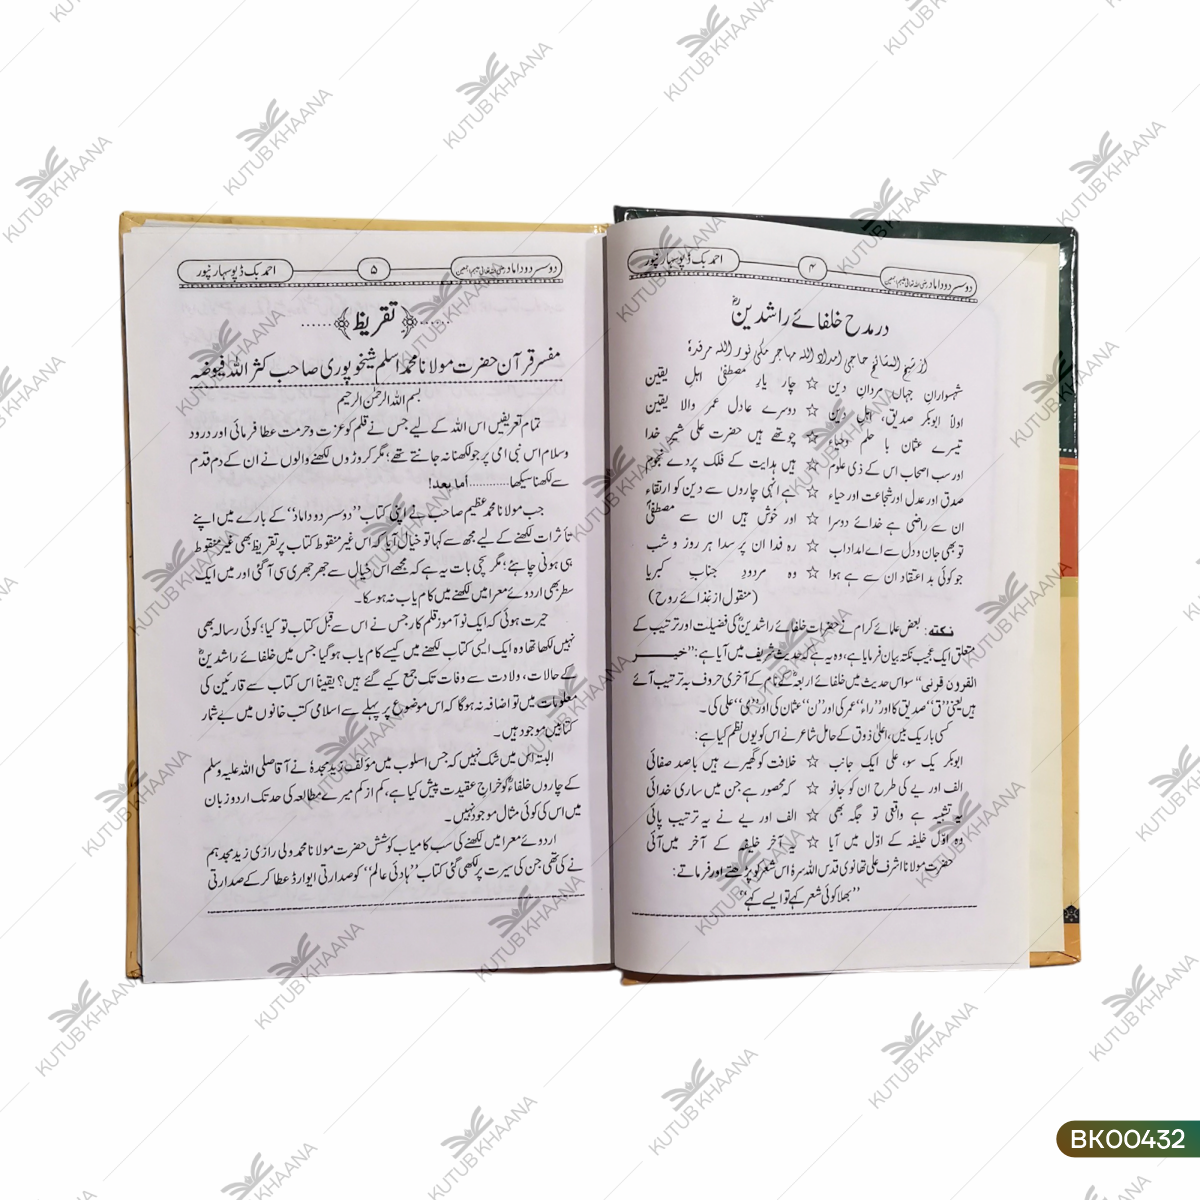 دوسسر دو داماد رضی اللہ تعالیٰ علیہم اجمعین
۴
احمد بک ڈپو سہارنپور
در مدح خلفائے راشدینؓ
از شیخ المشائخ حاجی امداد اللہ مہاجر مکی نور اللہ مرقدہٗ
شہسواران جہاں مردان دین ☆ چار یار مصطفیٰ اہل یقین
اولاً ابوبکر صدیق، اہل دین ☆ دوسرے عادل عمر والا یقین
تیسرے عثمان با حلم وحیاء ☆ چوتھے ہیں حضرت علی شیر خدا
اور سب اصحاب اس کے ذی علوم ☆ ہیں ہدایت کے فلک پر دے نجوم
صدق اور عدل اور شجاعت اور حیاء ☆ ہے انہی چاروں سے دین کو ارتقاء
ان سے راضی ہے خدائے دوسرا ☆ اور خوش ہیں ان سے مصطفیٰؐ
تو بھی جان و دل سے اے امداد اب ☆ رہ فدا ان پر سدا ہر روز و شب
جو کوئی بد اعتقاد ان سے ہے ہوا ☆ وہ مردود جناب کبریا
(منقول از غذائے روح)
نکتہ: بعض علمائے کرام نے حضرات خلفائے راشدینؓ کی فضیلت اور ترتیب کے
متعلق ایک عجیب نکتہ بیان فرمایا ہے، وہ یہ ہے کہ حدیث شریف میں آیا ہے: ”خیر
القرون قرنی“ سو اس حدیث میں خلفائے اربعہؓ کے نام کے آخری حروف بہ ترتیب آئے
ہیں یعنی ”ق“ صدیق کا اور ”راء“ عمر کی اور ”ن“ عثمان کی اور ”ی“ علی کی۔
کسی باریک بیں، اعلیٰ ذوق کے حامل شاعر نے اس کو یوں نظم کیا ہے:
ابوبکر یک سو، علی ایک جانب ☆ خلافت کو گھیرے ہیں باصد صفائی
الف اور یے کی طرح ان کو جانو ☆ کہ محصور ہے جن میں ساری خدائی
یہ تشبیہ ہے واقعی تو جگہ بھی ☆ الف اور یے نے یہ ترتیب پائی
وہ اوّل خلیفہ کے اوّل میں آیا ☆ یہ آخر خلیفہ کے آخر میں آئی
حضرت مولانا اشرف علی تھانوی قدس اللہ سرہٗ اس شعر کو پڑھتے اور فرماتے:
”بھلا کوئی شعر کہے تو ایسے کہے“
دوسسر دو داماد رضی اللہ تعالیٰ علیہم اجمعین
۵
احمد بک ڈپو سہارنپور
تقریظ
مفسر قرآن حضرت مولانا محمد اسلم شیخوپوری صاحب کثر اللہ فیوضہ
بسم اللہ الرحمٰن الرحیم
تمام تعریفیں اس اللہ کے لیے جس نے قلم کو عزت و حرمت عطا فرمائی اور درود
وسلام اس نبی امی پر جو لکھنا نہ جانتے تھے؛ مگر کروڑوں لکھنے والوں نے ان کے دم قدم
سے لکھنا سیکھا............أما بعد!
جب مولانا محمد عظیم صاحب نے اپنی کتاب ”دوسسر دو داماد“ کے بارے میں اپنے
تأثرات لکھنے کے لیے مجھ سے کہا تو خیال آیا کہ اس غیر منقوط کتاب پر تقریظ بھی غیر منقوط
ہی ہونی چاہئے؛ مگر سچی بات یہ ہے کہ مجھے اس خیال سے جھرجھری سی آگئی اور میں ایک
سطر بھی اردوئے معرا میں لکھنے میں کام یاب نہ ہوسکا۔
حیرت ہوئی کہ ایک نو آموز قلم کار جس نے اس سے قبل کتاب تو کیا؛ کوئی رسالہ بھی
نہیں لکھا تھا وہ ایک ایسی کتاب لکھنے میں کیسے کام یاب ہوگیا جس میں خلفائے راشدینؓ
کے حالات، ولادت سے وفات تک جمع کیے گئے ہیں؟ یقیناً اس کتاب سے قارئین کی
معلومات میں تو اضافہ نہ ہوگا کہ اس موضوع پر پہلے سے اسلامی کتب خانوں میں بے شمار
کتابیں موجود ہیں۔
البتہ اس میں شک نہیں کہ جس اسلوب میں مؤلف زید مجدہٗ نے آقا صلی اللہ علیہ وسلم
کے چاروں خلفاءؓ کو خراج عقیدت پیش کیا ہے، کم از کم میرے مطالعہ کی حد تک اردو زبان
میں اس کی کوئی مثال موجود نہیں۔
اردوئے معرا میں لکھنے کی سب کامیاب کوشش حضرت مولانا محمد ولی رازی زید مجدہم
نے کی تھی جن کی سیرت پر لکھی گئی کتاب ”ہادئ عالم“ کو صدارتی ایوارڈ عطا کر کے صدارتی
KUTUB KHAANA
BK00432